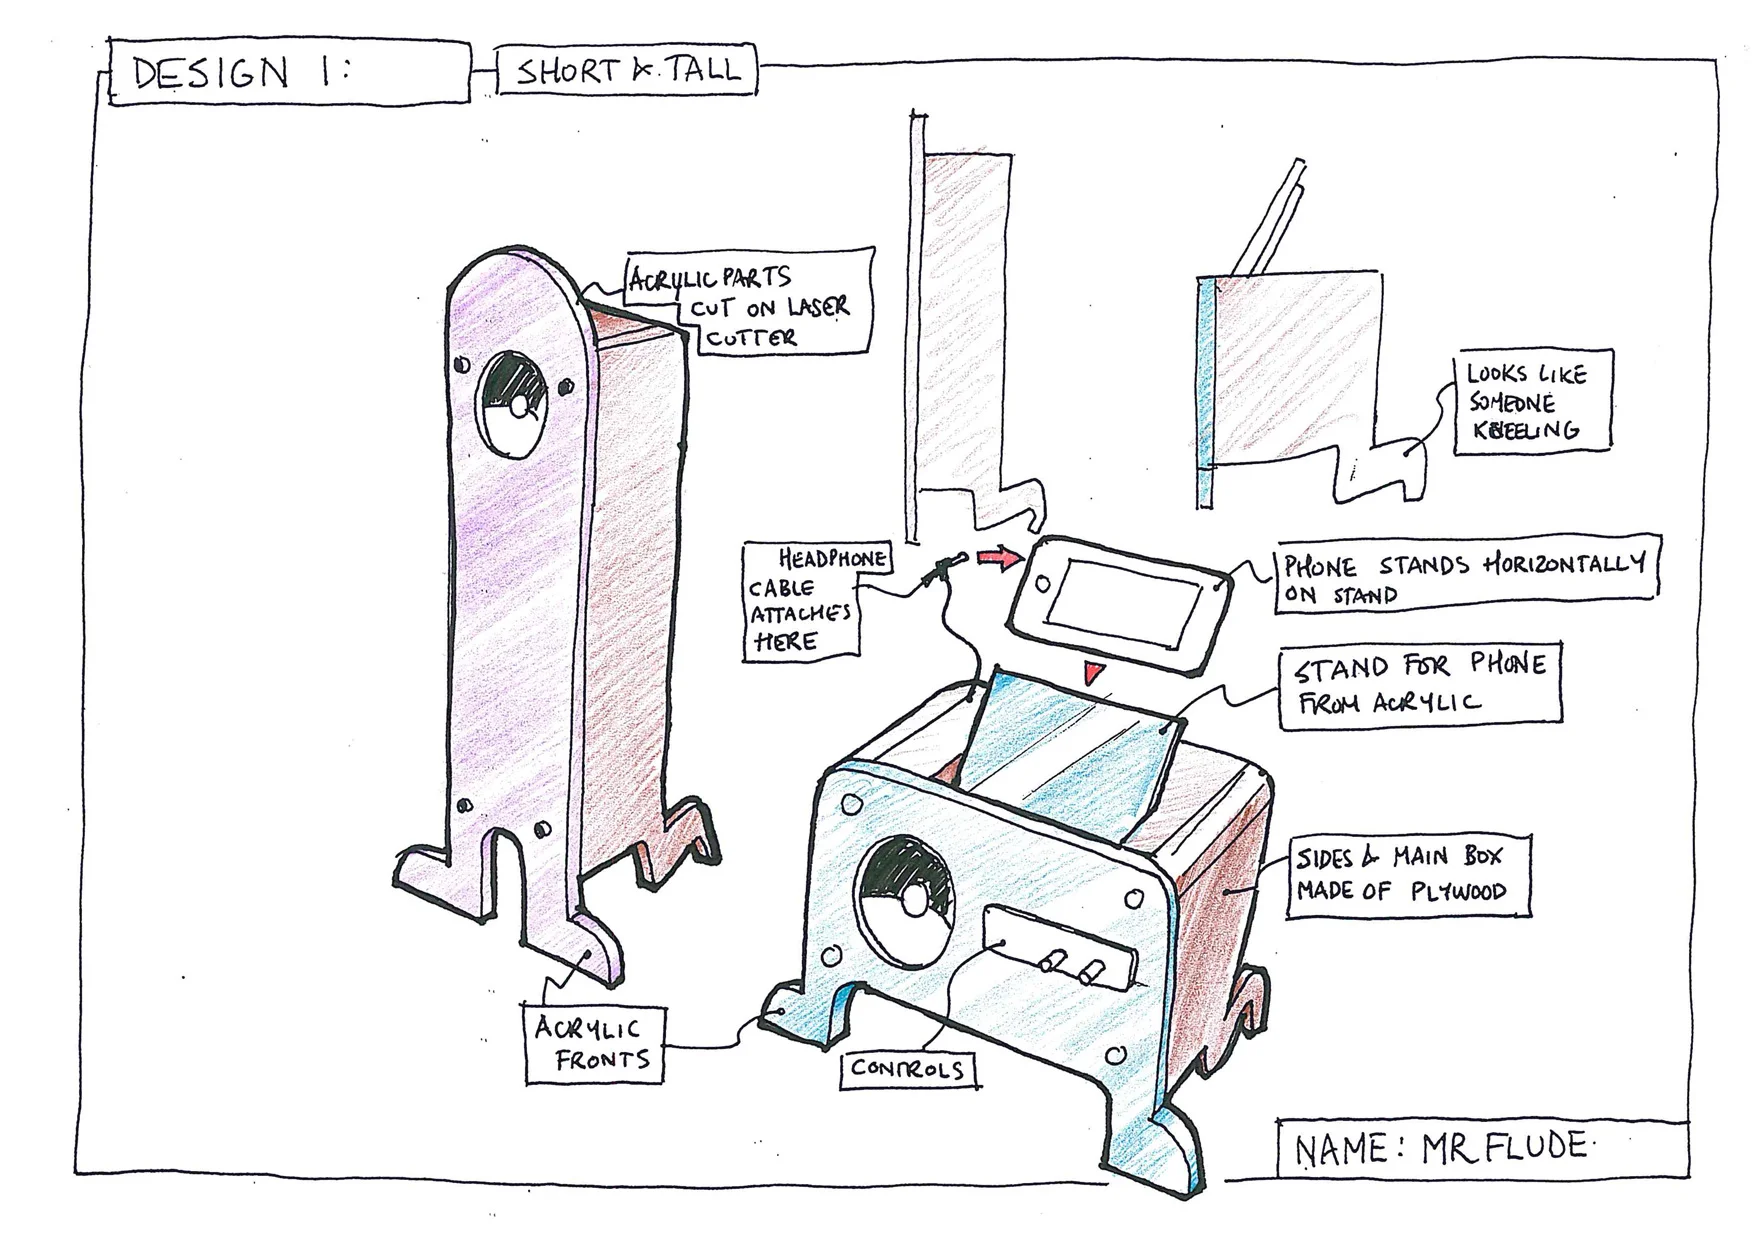 DESIGN 1:
SHORT & TALL
ACRYLIC PARTS
CUT ON LASER
CUTTER
LOOKS LIKE
SOMEONE
KNEELING
HEADPHONE
CABLE
ATTACHES
HERE
PHONE STANDS HORIZONTALLY
ON STAND
STAND FOR PHONE
FROM ACRYLIC
SIDES & MAIN BOX
MADE OF PLYWOOD
ACRYLIC
FRONTS
CONTROLS
NAME: MR FLUDE